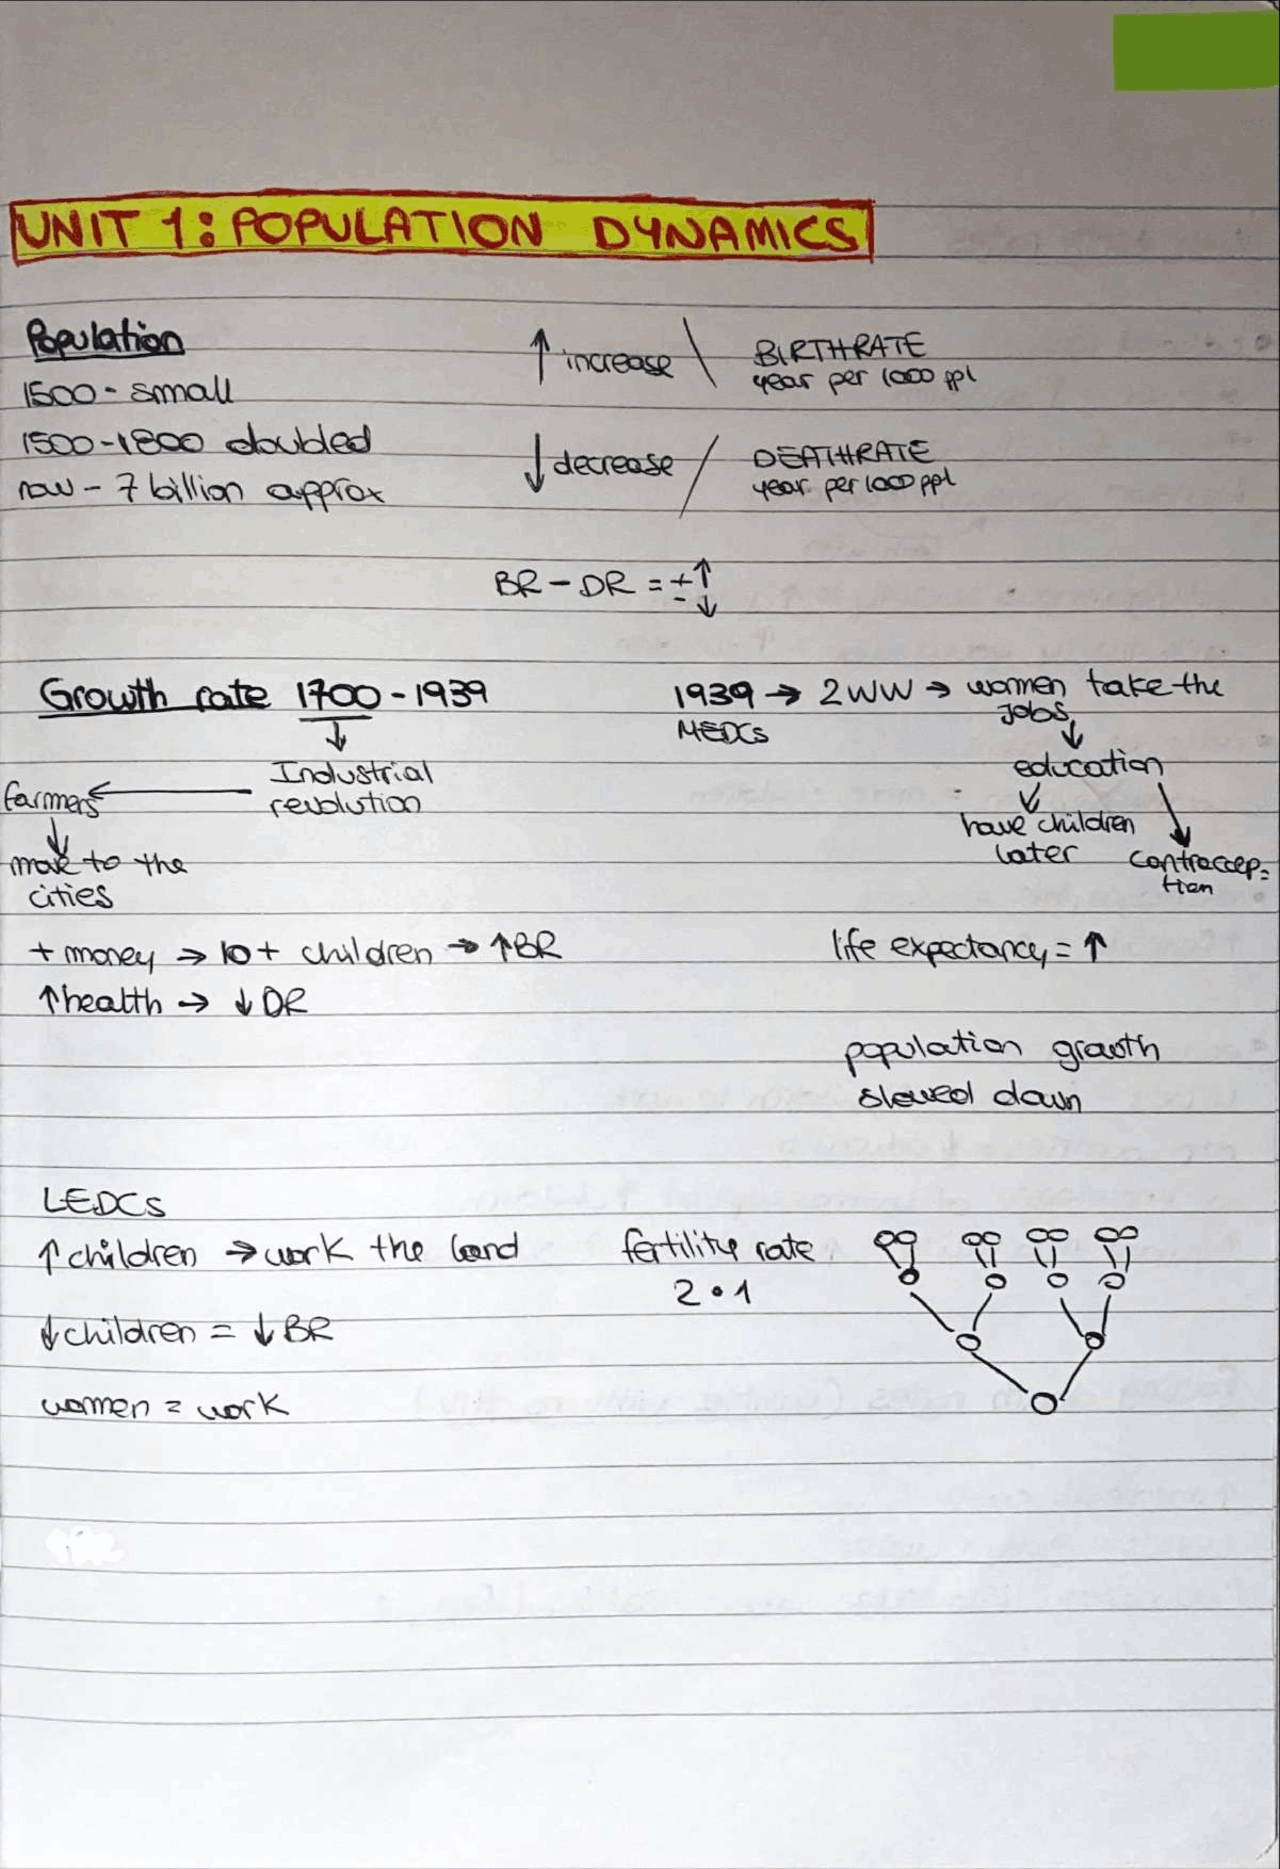 UNIT 1: POPULATION DYNAMICS
Population
1500 - small
1500-1800 doubled
now - 7 billion approx
↑ increase \ BIRTHRATE
year per 1000 ppl
↓ decrease / DEATHRATE
year per 1000 ppl
BR - DR = + ↑
- ↓
Growth rate 1700 - 1939
↓
Industrial
revolution
←
farmers
↓
move to the
cities
+ money → 10+ children → ↑BR
↑health → ↓ DR
1939 → 2WW → women take the
MEDCs
jobs
↓
education
↓ ↘
have children
later
contraccep=
tion
life expectancy = ↑
population growth
slowed down
LEDCs
↑ children → work the land
↓ children = ↓ BR
women = work
fertility rate
2.1